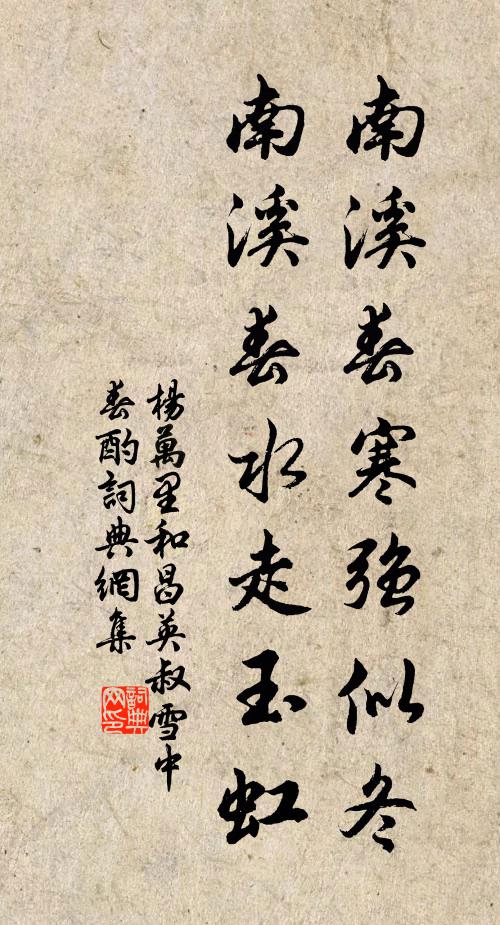 南溪春寒強似冬
南溪春水走玉虹
楊萬里和昌英叔雪中
春酌詞典網集
詞典
网印